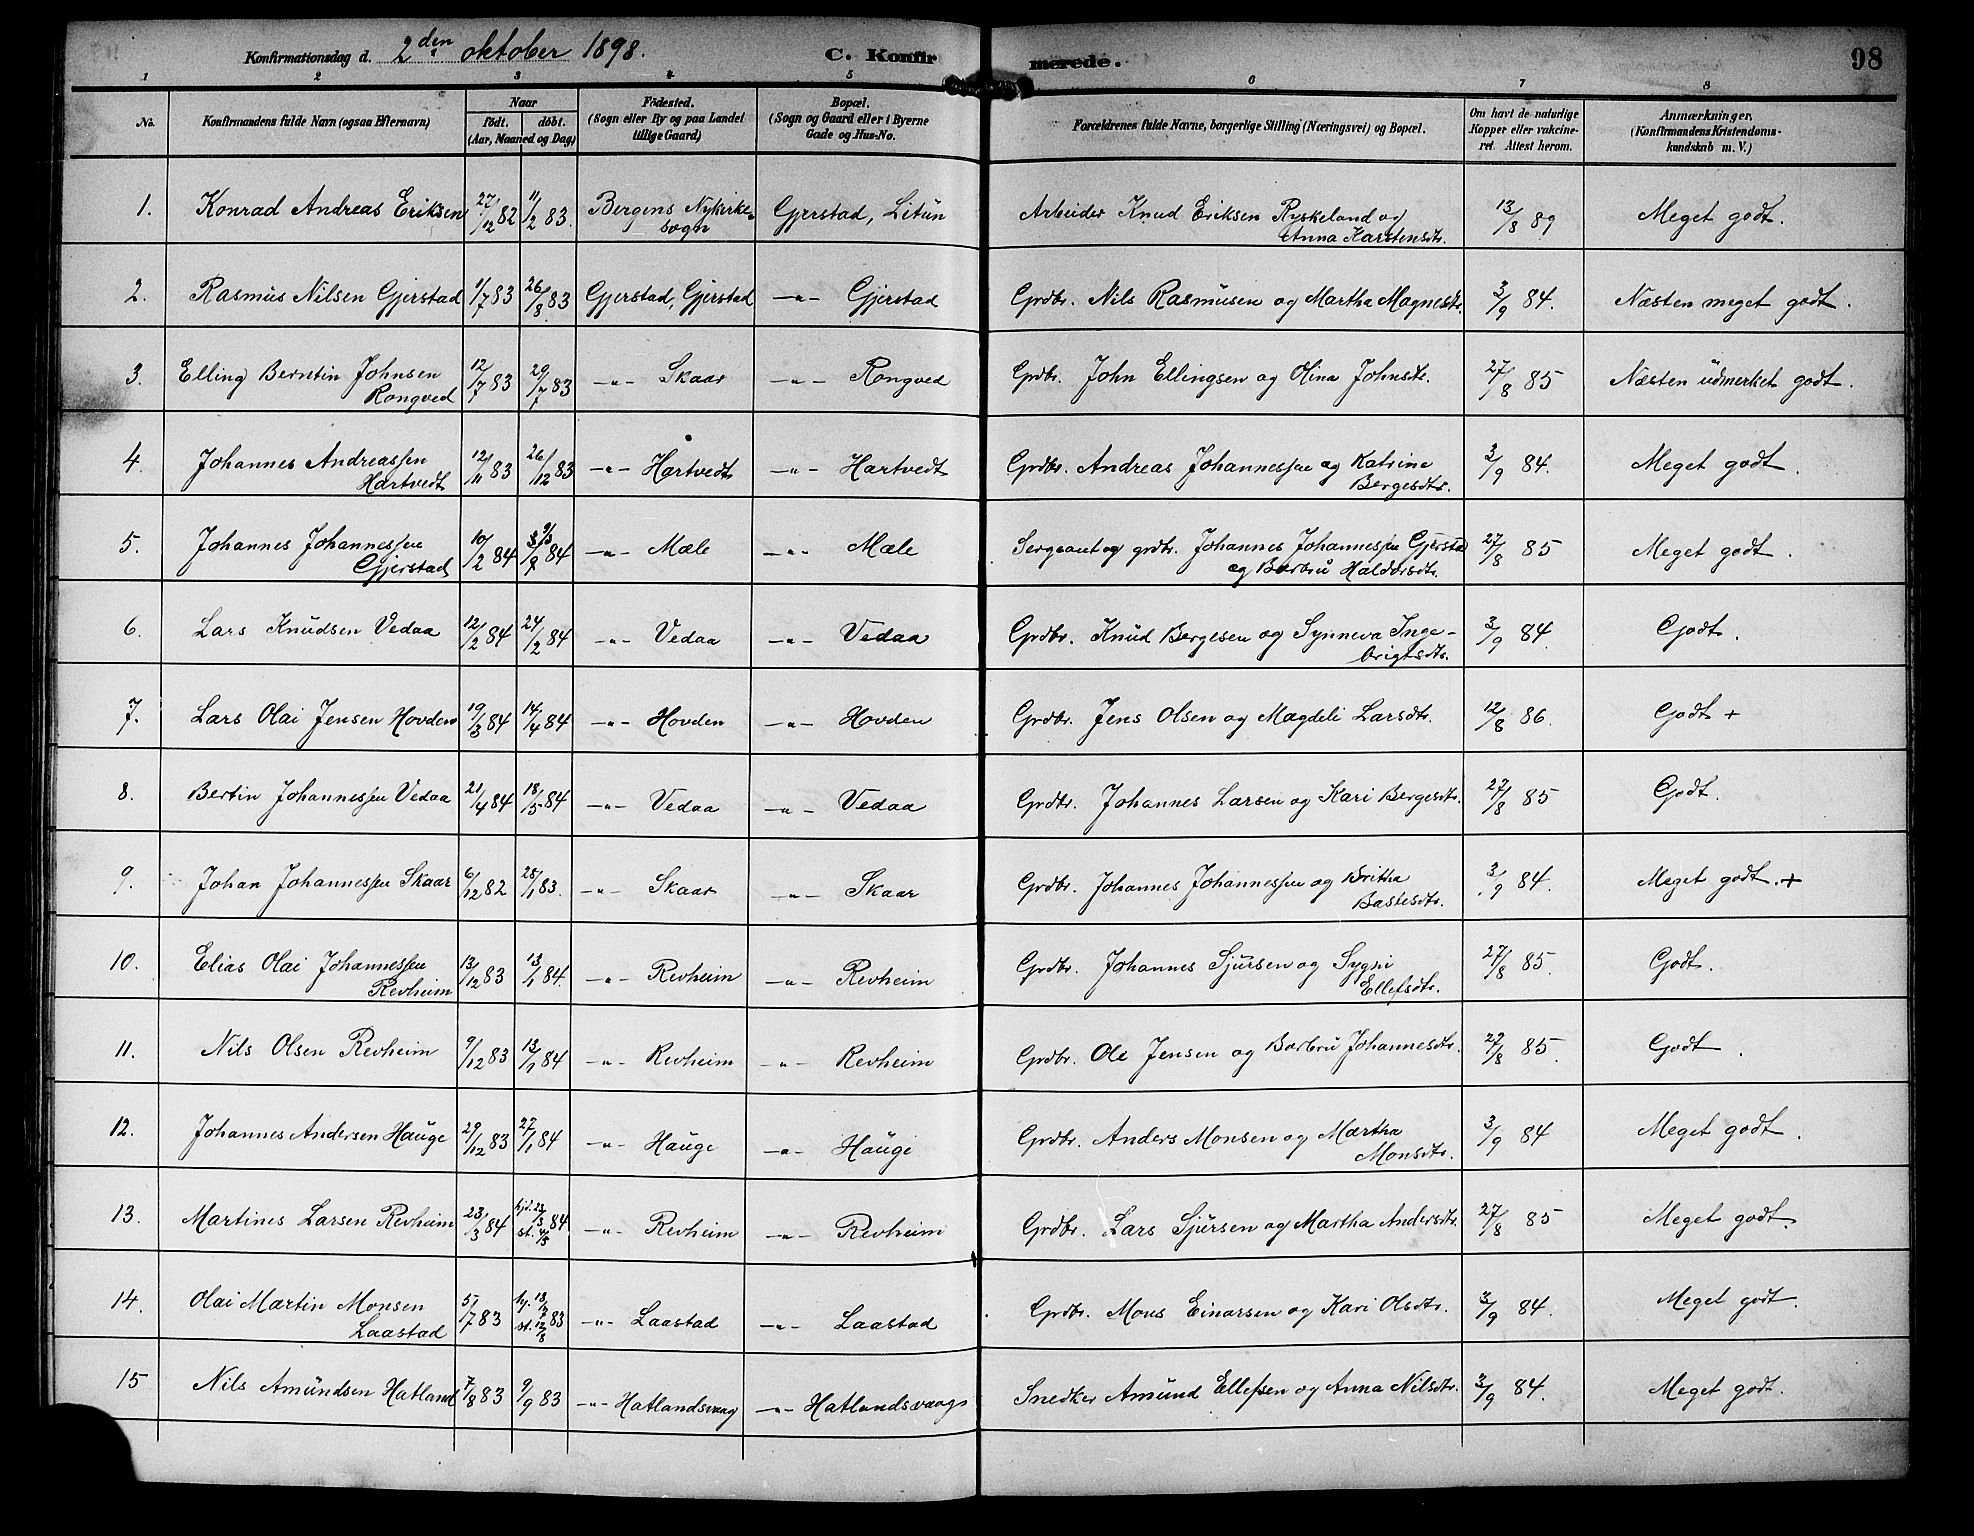 Konfirmationsdag d. 2den oktober 1898. C. Konfirmerede. 98
1 2 3 4 5 6 7 8
No. Konfirmandens fulde Navn (ogsaa Efternavn) Naar født. døbt. (Aar, Maaned og Dag) Fødested. (Sogn eller By og paa Landet tillige Gaard) Bopæl. (Sogn og Gaard eller i Byerne Gade og Hus-No. Forældrenes fulde Navne, borgerlige Stilling (Næringsvei) og Bopæl. Om havt de naturlige Kopper eller vakcineret. Attest herom. Anmærkninger. (Konfirmandens Kristendomskundskab m. V.)
1. Konrad Andreas Eriksen 27/12 82 11/2 83. Bergens Nykirkesogn Gjerstad, Litün Arbeider Knud Eriksen Ryskeland og Anna Karstensdtr. 13/8 89 Meget godt.
2. Rasmüs Nilsen Gjerstad 1/7 83 26/8 83 Gjerstad, Gjerstad -"- Gjerstad Grdbr. Nils Rasmüsen og Martha Magnesdtr. 3/9 84. Næsten meget godt.
3. Elling Berntin Johnsen Rongved 12/7 83 29/7 83 -"- Skaar -"- Rongved Grdbr. John Ellingsen og Olina Johnsdtr. 27/8 85 Næsten üdmerket godt.
4. Johannes Andreassen Hartvedt 12/11 83 26/12 83 -"- Hartvedt -"- Hartvedt Grdbr. Andreas Johannessen og Katrine Bergesdtr. 3/9 84. Meget godt.
5. Johannes Johannessen Gjerstad 10/2 84 84 -"- Mæle -"- Mæle Sergeant og grdbr. Johannes Johannessen Gjerstad og Barbrü Haldorsdtr. 27/8 85 Meget godt.
6. Lars Knüdsen Vedaa 12/2 84 24/2 84 -"- Vedaa -"- Vedaa Grdbr. Knüd Bergesen og Synneva Ingebrigtsdtr. 3/9 84. Godt.
7. Lars Olai Jensen Hovden 19/3 84 14/4 84 -"- Hovden -"- Hovden Grdbr. Jens Olsen og Magdeli Larsdtr. 12/8 86. Godt +
8. Bertin Johannessen Vedaa 21/4 84 18/5 84 -"- Vedaa -"- Vedaa Grdbr. Johannes Larsen og Kari Bergesdtr. 27/8 85 Godt.
9. Johan Johannessen Skaar 6/12 82 28/1 83. -"- Skaar -"- Skaar Grdbr. Johannes Johannessen og Britha Bastesdtr. 3/9 84. Meget godt. +
10. Elias Olai Johannessen Revheim 13/12 83 13/1 84. -"- Revheim -"- Revheim Grdbr. Johannes Sjürsen og Sygni Ellefsdtr. 27/8 85. Godt.
11. Nils Olsen Revheim 9/12 83 13/1 84 -"- Revheim -"- Revheim Grdbr. Ole Jensen og Barbrü Johannesdtr. 27/8 85. Godt.
12. Johannes Andersen Haüge 29/12 83 27/1 84 -"- Haüge -"- Haüge Grdbr. Anders Monsen og Martha Monsdtr. 3/9 84 Meget godt.
13. Martines Larsen Revheim 23/3 84 hjd. 23/3 st. 4/5 84 -"- Revheim -"- Revheim Grdbr. Lars Sjürsen og Martha Andersdtr. 27/8 85 Meget godt.
14. Olai Martin Monsen Laastad 5/7 83 hj. st. 12/8 83 -"- Laastad -"- Laastad Grdbr. Mons Einarsen og Kari Olsdtr. 3/9 84. Meget godt.
15 Nils Amündsen Hatland 7/8 83 9/9 83 -"- Hatlandsvaag -"- Hatlandsvaag Snedker Amünd Ellefsen og Anna Nilsdtr. 3/9 84. Meget godt.